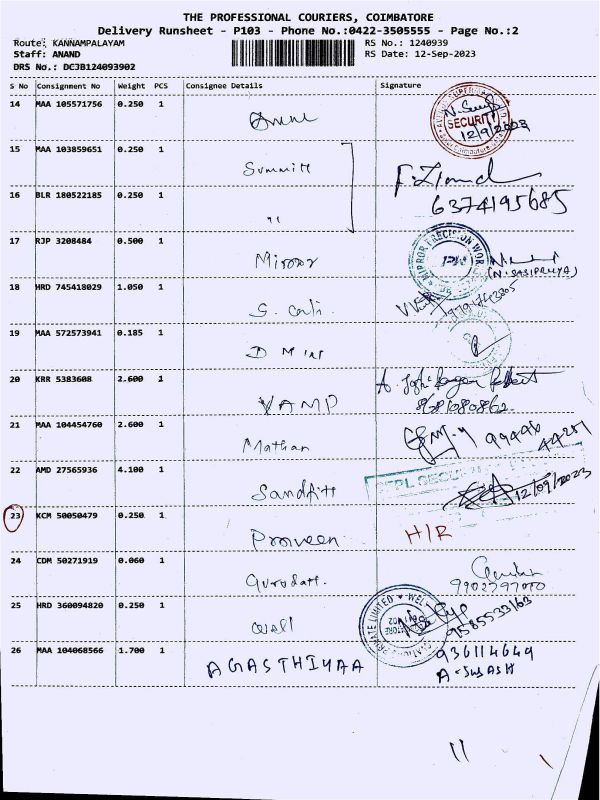 THE PROFESSIONAL COURIERS, COIMBATORE
Delivery Runsheet - P103 - Phone No.:0422-3505555 - Page No.:2
Route: KANNAMPALAYAM RS No.: 1240939
Staff: ANAND RS Date: 12-Sep-2023
DRS No.: DCJB124093902
S No Consignment No Weight PCS Consignee Details Signature
14 MAA 105571756 0.250 1 SECURITY 12/9/2023
15 MAA 103859651 0.250 1 Summitt
16 BLR 180522185 0.250 1 " 6374195685
17 RJP 3208484 0.500 1 Mirror MIRROR PRECISION WOR (N. SASIPRIYA)
18 HRD 745418029 1.050 1
19 MAA 572573941 0.185 1
20 KRR 5383608 2.600 1 VAMP
21 MAA 104454760 2.600 1 Mathan 99496 44251
22 AMD 27565936 4.100 1 Sandfitt 12/09/2023
23 KCM 50050479 0.250 1 Praveen H/R
24 CDM 50271919 0.060 1 Gurudatt.
25 HRD 360094820 0.250 1 Well PRIVATE LIMITED WEL 9585533163
26 MAA 104068566 1.700 1 AGASTHIYAA 936114649